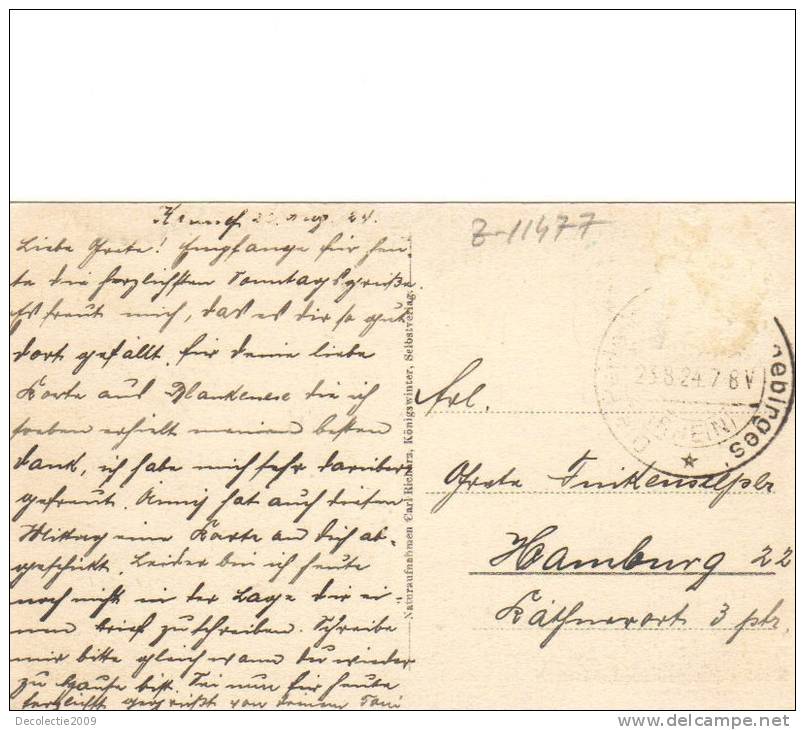 Aug. 24.
Z-11477
Liebe Grete! Empfange für heu-
te die herzlichsten Sonntagsgrüße.
Es freut mich, das es dir so gut
dort gefällt. für deine liebe
Karte aus Blankenese die ich
soeben erhielt meinen besten
dank, ich habe mich sehr darüber
gefreut. Anny hat auch diesen
Mittag eine Karte an dich ab-
geschickt. Leider bin ich heute
noch nicht in der Lage dir ei-
nen brief zu schreiben. Schreibe
mir bitte gleich wann du wieder
zu Hause bist. Sei nun für heute
herzlichst gegrüßt von deinem Toni
Naturaufnahmen Carl Richarz, Königswinter, Selbstverlag.
gebirges
23.8.24.7-8V
(RHEIN)
Frl.
Grete
Hamburg 22
3 ptr.
Decolectie2009
delcampe.net